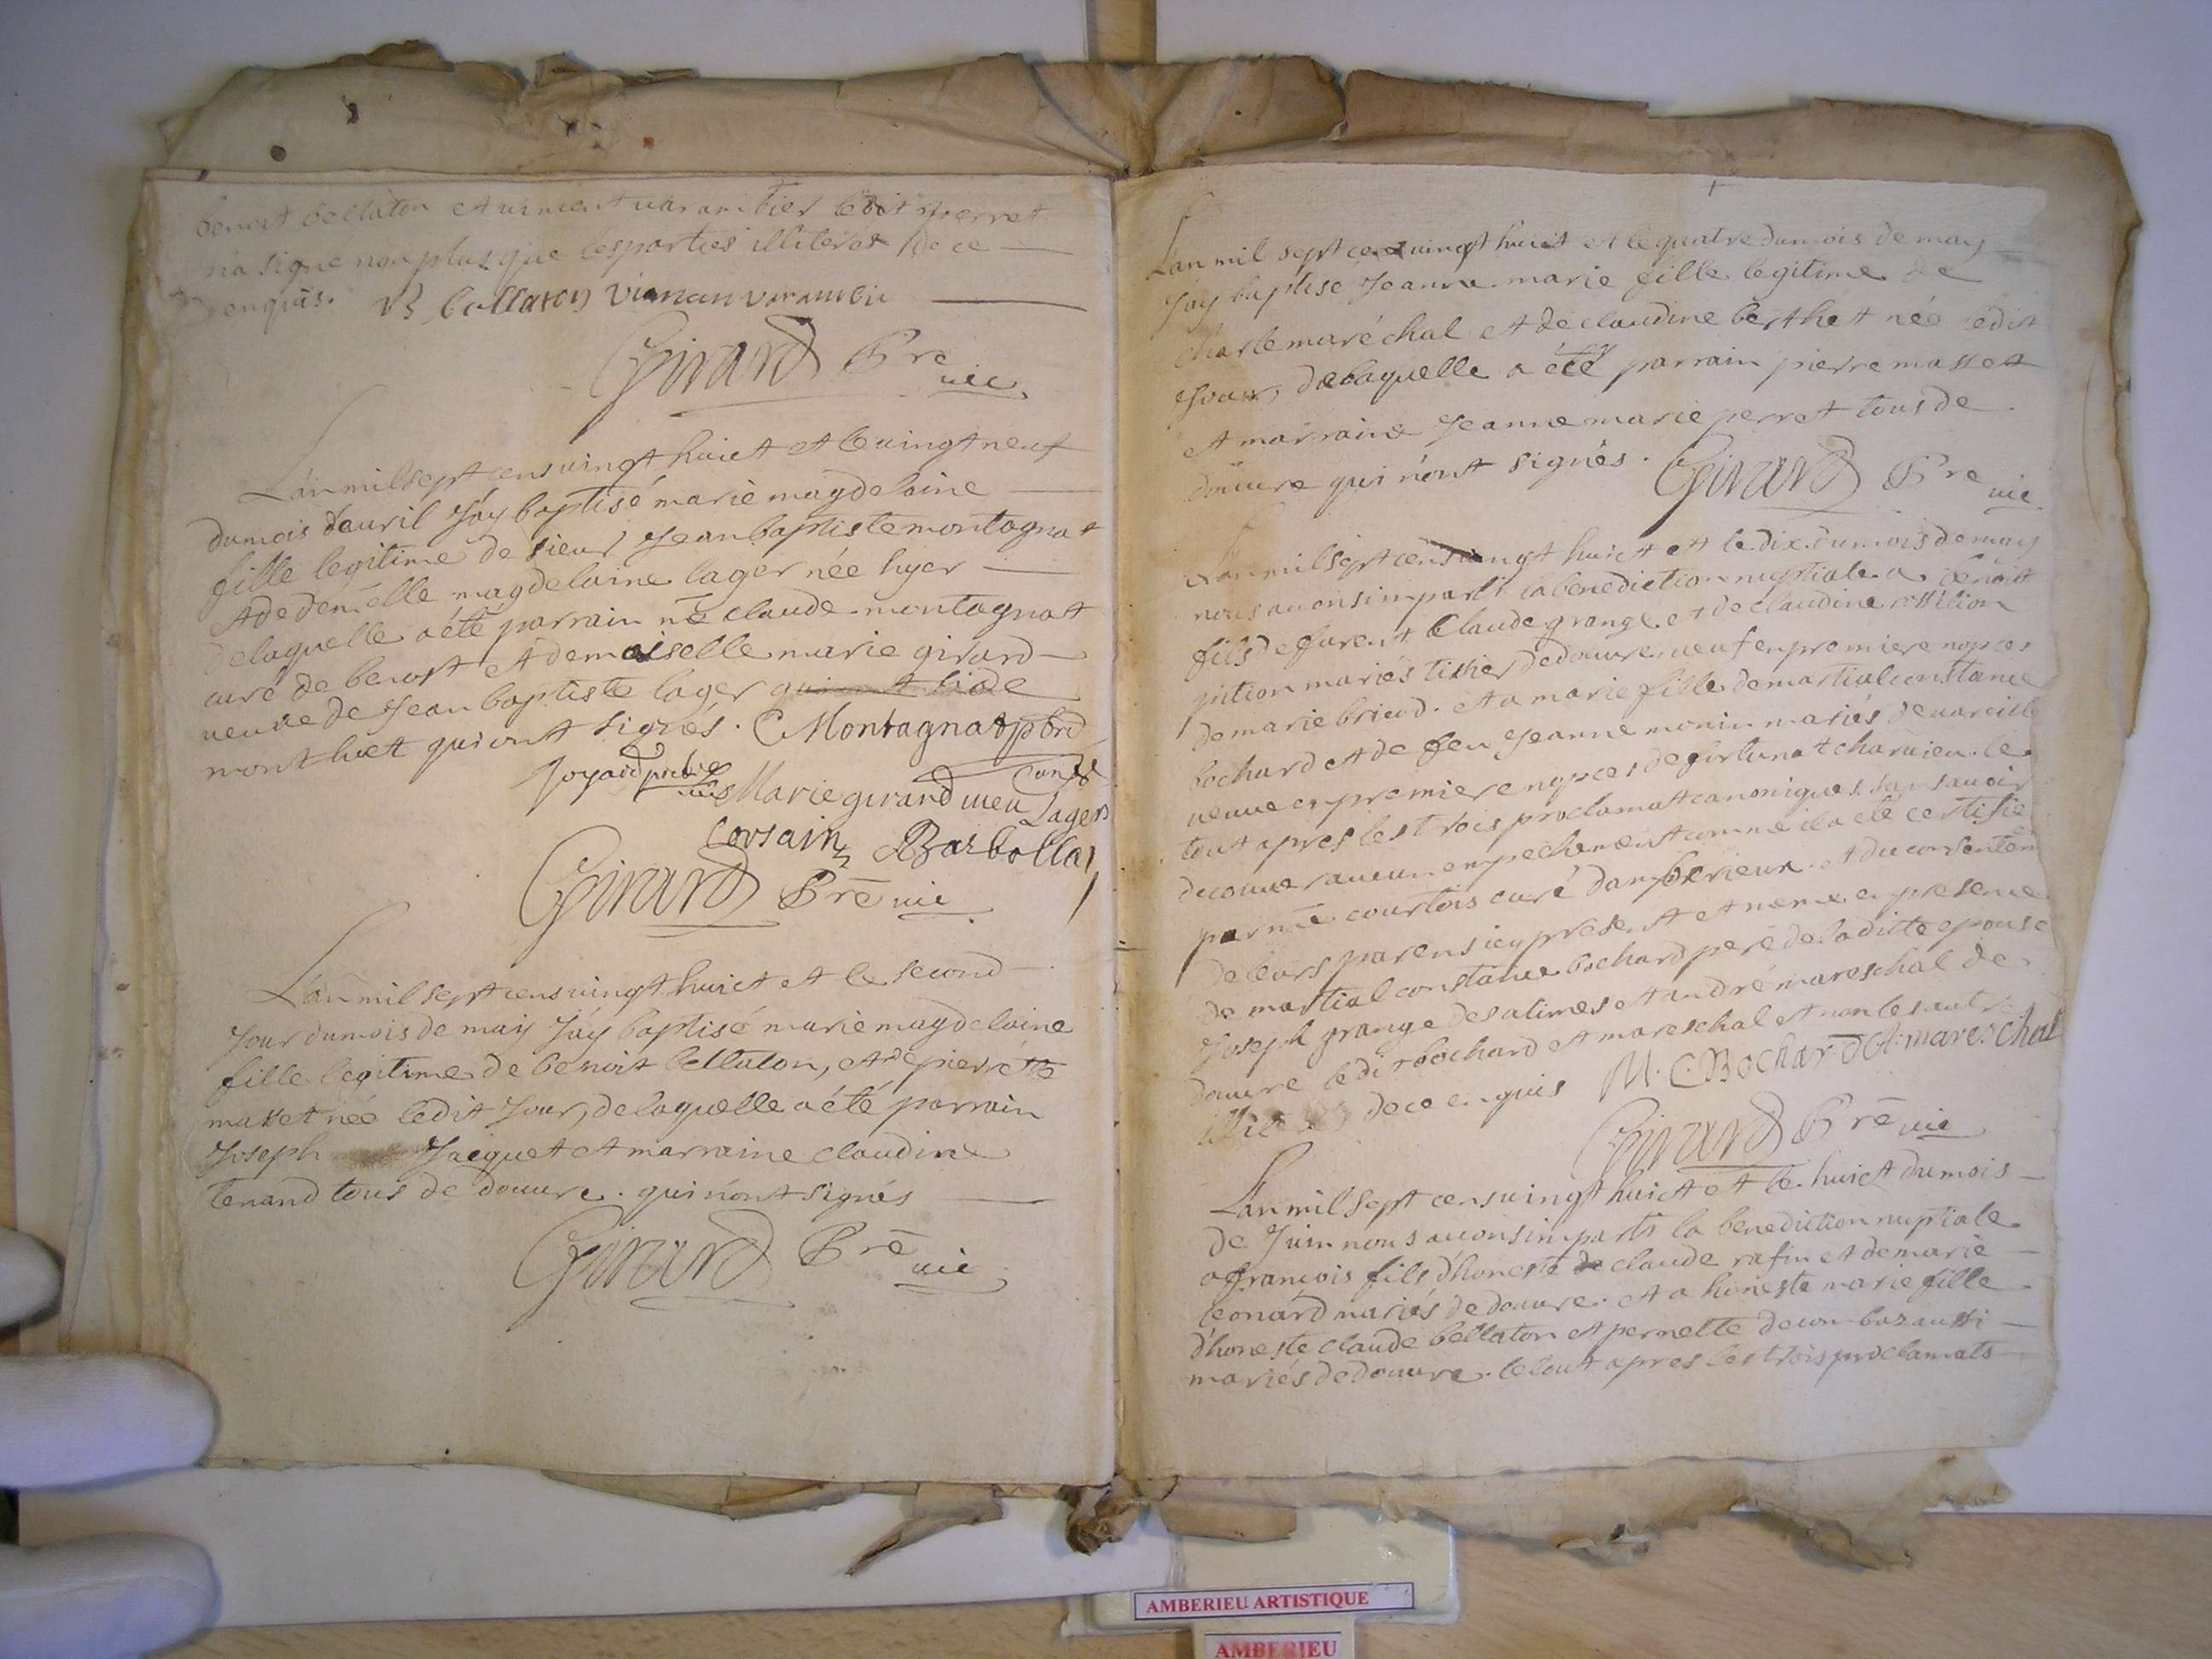 benoit bellaton et uiment uarambier ledit perret
na signé non plus que les parties illiterés de ce
enquis. B bellaton Viman varambie
Girard Pre vic
L'an mil sept cens vingt huict et le vingt neuf
du mois d'auril J'ay baptisé marie magdelaine
fille legitime de sieur Jean baptiste montagnat
et de demelle magdelaine lager née hyer
de laquelle a été parrain mre claude montagnat
curé de benost et demoiselle marie girard
veuve de Jean baptiste lager
qui ont signés. C Montagnat pbre
Curé
Marie girard uieu Lager
Corsain Barbollat
Girard Prē vic
L'an mil sept cens vingt huict et le second
Jour du mois de may J'ay baptisé marie magdelaine
fille legitime de benoit bellaton, et de pierrette
masset née ledit Jour, de laquelle a été parrain
Joseph Jacquet et marraine claudine
tenand tous de douvre. qui n'ont signés
Girard Prē vic
L'an mil sept cens vingt huict et le quatre du mois de may
J'ay baptisé Jeanne marie fille legitime de
charle maréchal et de claudine berthet née ledit
Jour, de laquelle a été parrain pierre masset
et marraine Jeanne marie perret tous de
douvre qui n'ont signés. Girard Pre vic
L'an mil sept cens vingt huict et le dix du mois de may
nous avons imparti la benediction nuptiale a benoit
fils de furent Claude grange et de claudine
mariés tissier de douvre veuf en premiere nopces
de marie brieud. et a marie fille de martial constance
bochard et de feu Jeanne monin mariés de vareille
veuve en premiere nopces de fortunat charuieu. le
tout apres les trois proclamat canoniques. sans auoir
decouver aucun empechement comme il a été certifié
par mre courtois curé d'amberieux. et du consentem
de leurs parens icy present et meme en presence
de martial constance bochard pere de la ditte epouse
Joseph grange des alimes et andré mareschal de
douvre ledit bochard et mareschal et non les autre
de ce enquis M. C. Bochard A. mareschal
Girard Prē vic
L'an mil sept cens vingt huict et le huict du mois
de Juin nous avons imparti la benediction nuptiale
a francois fils d'honeste claude rafin et de marie
leonard mariés de douvre. et a honeste marie fille
d'honeste claude bellaton et pernette decombaz aussi
mariés de douvre. le tout apres les trois proclamats
AMBERIEU ARTISTIQUE
AMBERIEU